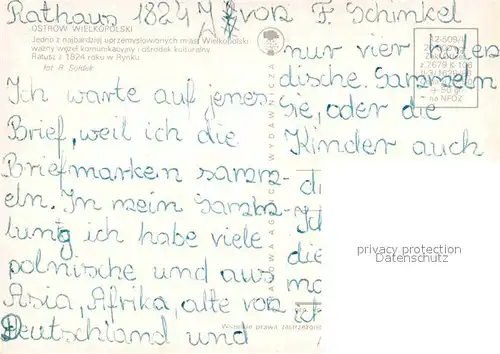 Rathaus 1824 J von F. Schinkel
OSTRÓW WIELKOPOLSKI
Jedno z najbardziej uprzemysłowionych miast Wielkopolski
ważny węzeł komunikacyjny i ośrodek kulturalny
Ratusz z 1824 roku w Rynku
fot. R. Sołdek
Ich warte auf jenes
Brief, weil ich die
Briefmarken samm-
eln. In mein Samm-
lung ich habe viele
polnische und aus
Asia, Afrika, alte von
Deutschland und
nur vier
dische. Sammeln
Sie, oder die
Kinder auch
di
Ich
die
ma
ich
KRAJOWA AGENCJA WYDAWNICZA
Wszelkie prawa zastrzeżone
privacy protection
Datenschutz